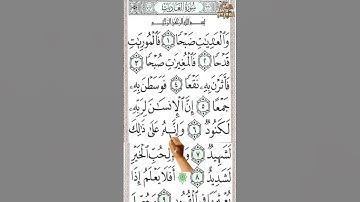 سورة العاديات
بسم الله الرحمن الرحيم
وَالْعَٰدِيَٰتِ ضَبْحًا ١ فَالْمُورِيَٰتِ
قَدْحًا ٢ فَالْمُغِيرَٰتِ صُبْحًا ٣
فَأَثَرْنَ بِهِۦ نَقْعًا ٤ فَوَسَطْنَ بِهِۦ
جَمْعًا ٥ إِنَّ الْإِنسَٰنَ لِرَبِّهِۦ
لَكَنُودٌ ٦ وَإِنَّهُۥ عَلَىٰ ذَٰلِكَ
لَشَهِيدٌ ٧ لِحُبِّ الْخَيْرِ
لَشَدِيدٌ ٨ أَفَلَا يَعْلَمُ إِذَا
بُعْثِرَ مَا فِي الْقُبُورِ ٩